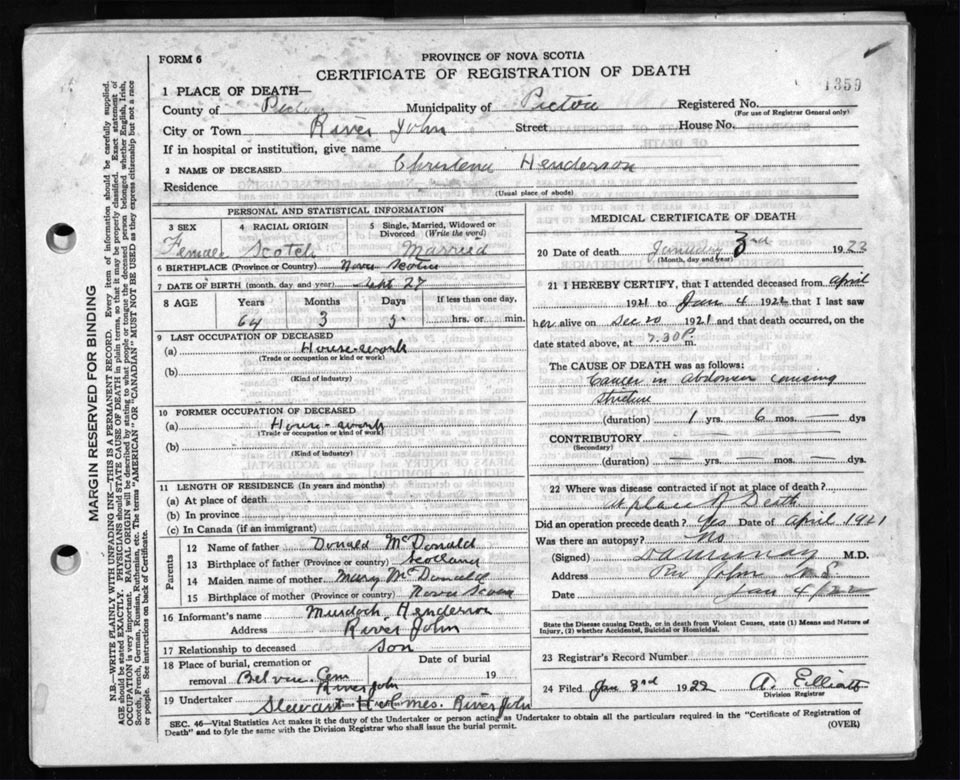 FORM 6
PROVINCE OF NOVA SCOTIA
CERTIFICATE OF REGISTRATION OF DEATH
1359
1 PLACE OF DEATH—
County of Pictou Municipality of Pictou Registered No.
(For use of Registrar General only)
City or Town River John Street House No.
If in hospital or institution, give name
2 NAME OF DECEASED Christena Henderson
Residence
(Usual place of abode)
PERSONAL AND STATISTICAL INFORMATION
3 SEX 4 RACIAL ORIGIN 5 Single, Married, Widowed or
Divorced (Write the word)
Female Scotch Married
6 BIRTHPLACE (Province or Country) Nova Scotia
7 DATE OF BIRTH (month, day and year) Sept 27
8 AGE Years Months Days If less than one day,
64 3 5 hrs. or min.
9 LAST OCCUPATION OF DECEASED
(a) House-work
(Trade or occupation or kind of work)
(b)
(Kind of industry)
10 FORMER OCCUPATION OF DECEASED
(a) House-work
(Trade or occupation or kind of work)
(b)
(Kind of industry)
11 LENGTH OF RESIDENCE (In years and months)
(a) At place of death
(b) In province
(c) In Canada (if an immigrant)
Parents
12 Name of father Donald McDonald
13 Birthplace of father (Province or country) Scotland
14 Maiden name of mother Mary McDonald
15 Birthplace of mother (Province or country) Nova Scotia
16 Informant's name Murdoch Henderson
Address River John
17 Relationship to deceased son
18 Place of burial, cremation or Date of burial
removal Cem 19
River John
19 Undertaker Stewart Holmes. River John
MEDICAL CERTIFICATE OF DEATH
20 Date of death January 3rd 1923
(Month, day and year)
21 I HEREBY CERTIFY, that I attended deceased from April
1921 to Jan 4 1922 that I last saw
her alive on Dec 20 1921 and that death occurred, on the
date stated above, at 7.30P. m.
The CAUSE OF DEATH was as follows:
Cancer in abdomen causing
stricture
(duration) 1 yrs. 6 mos. — dys
CONTRIBUTORY
(Secondary)
(duration) — yrs. — mos. — dys.
22 Where was disease contracted if not at place of death?
At place of Death
Did an operation precede death? Yes Date of April 1921
Was there an autopsy? No
(Signed) M.D.
Address Riv John N.S.
Date Jan 4 1922
State the Disease causing Death, or in death from Violent Causes, state (1) Means and Nature of
Injury, (2) whether Accidental, Suicidal or Homicidal.
23 Registrar's Record Number
24 Filed Jan 3rd 1922 A. Elliott
Division Registrar
SEC. 46—Vital Statistics Act makes it the duty of the Undertaker or person acting as Undertaker to obtain all the particulars required in the "Certificate of Registration of
Death" and to fyle the same with the Division Registrar who shall issue the burial permit.
(OVER)
MARGIN RESERVED FOR BINDING
N.B.—WRITE PLAINLY WITH UNFADING INK—THIS IS A PERMANENT RECORD. Every item of information should be carefully supplied.
AGE should be stated EXACTLY. PHYSICIANS should STATE CAUSE OF DEATH in plain terms, so that it may be properly classified. Exact statement of
OCCUPATION is very important. RACIAL ORIGIN will be described by stating to what people or tongue the deceased person belonged whether English, Irish,
Scotch, French, German, Russian, Ruthenian, etc. The terms "AMERICAN" or "CANADIAN" MUST NOT BE USED as they express citizenship but not a race
or people. See instructions on back of Certificate.